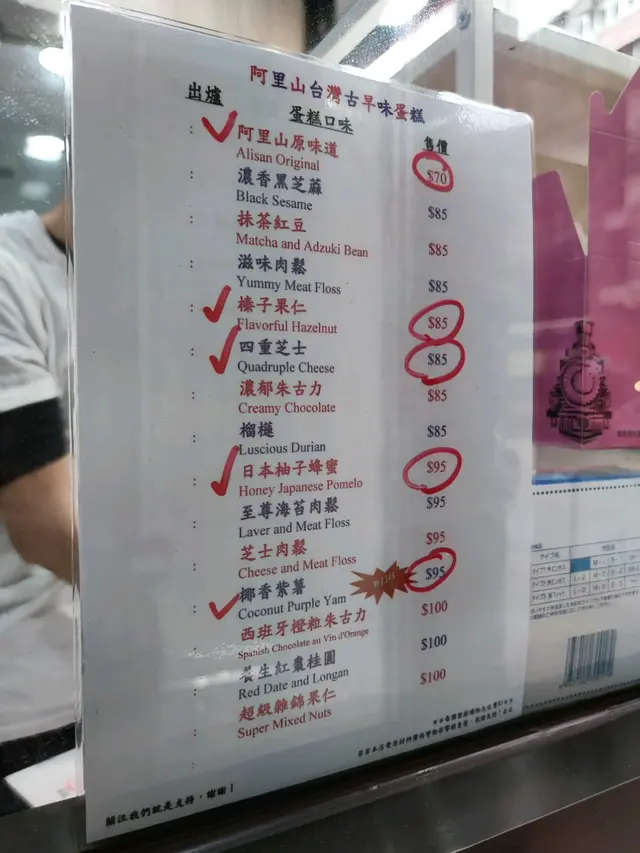 阿里山台灣古早味蛋糕
出爐 蛋糕口味 售價
: 阿里山原味道 $70
Alisan Original
: 濃香黑芝蔴 $85
Black Sesame
: 抹茶紅豆 $85
Matcha and Adzuki Bean
: 滋味肉鬆 $85
Yummy Meat Floss
: 榛子果仁 $85
Flavorful Hazelnut
: 四重芝士 $85
Quadruple Cheese
: 濃郁朱古力 $85
Creamy Chocolate
: 榴槤 $85
Luscious Durian
: 日本柚子蜂蜜 $95
Honey Japanese Pomelo
: 至尊海苔肉鬆 $95
Laver and Meat Floss
: 芝士肉鬆 $95
Cheese and Meat Floss
: 椰香紫薯 $95
Coconut Purple Yam
: 西班牙橙粒朱古力 $100
Spanish Chocolate au Vin d'Orange
: 養生紅棗桂圓 $100
Red Date and Longan
: 超級雜錦果仁 $100
Super Mixed Nuts
關注我們就是支持，謝謝！